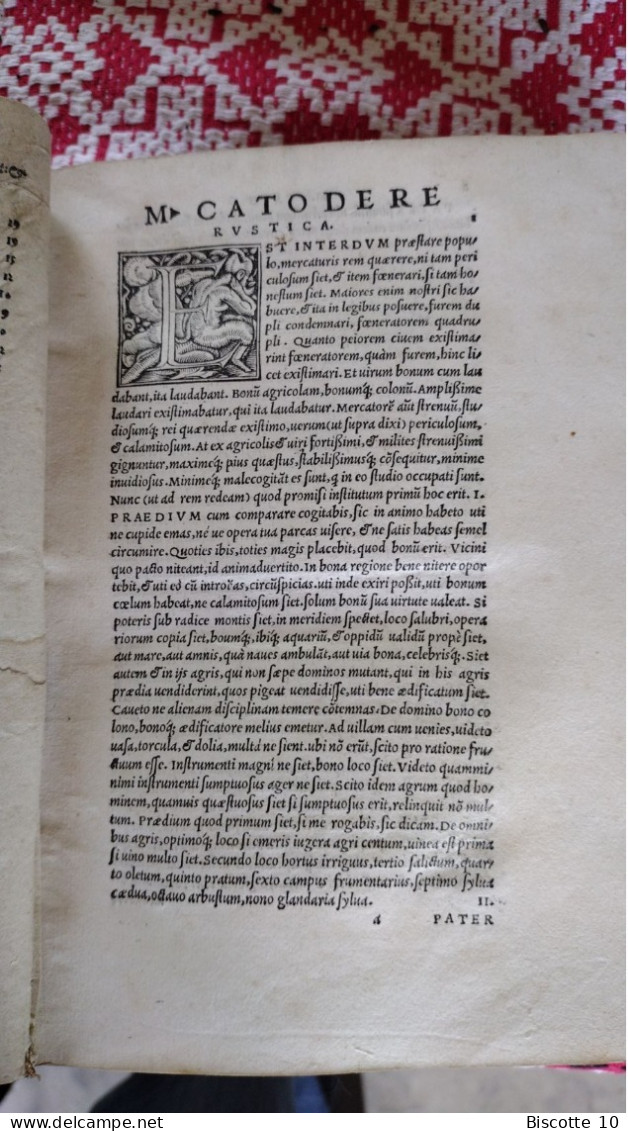 M. CATO DE RE
1
RVSTICA.
EST INTERDVM præstare popu-
lo, mercaturis rem quærere, ni tam peri
culosum siet, & item fœnerari, si tam ho
nestum siet. Maiores enim nostri sic ha
buere, & ita in legibus posuere, furem du
pli condemnari, fœneratorem quadru-
pli. Quanto peiorem ciuem existima-
rint fœneratorem, quàm furem, hinc li-
cet existimari. Et uirum bonum cum lau
dabant, ita laudabant. Bonũ agricolam, bonumq; colonũ. Amplissime
laudari existimabatur, qui ita laudabatur. Mercatorẽ aũt strenuũ, stu-
diosumq; rei quærendæ existimo, uerum (ut supra dixi) periculosum,
& calamitosum. At ex agricolis & uiri fortissimi, & milites strenuissimi
gignuntur, maximeq; pius quæstus, stabilissimusq; cõsequitur, minime
inuidiosus. Minimeq; malecogitãtes sunt, q in eo studio occupati sunt.
Nunc (ut ad rem redeam) quod promisi institutum primũ hoc erit. I.
PRAEDIVM cum comparare cogitabis, sic in animo habeto uti
ne cupide emas, né ue opera tua parcas uisere, & ne satis habeas semel
circumire. Quoties ibis, toties magis placebit, quod bonũ erit. Vicini
quo pacto niteant, id animaduertito. In bona regione bene nitere opor
tebit, & uti eò cũ introëas, circũspicias. uti inde exiri possit, uti bonum
cœlum habeat, ne calamitosum siet. solum bonũ sua uirtute ualeat. Si
poteris sub radice montis siet, in meridiem spectet, loco salubri, opera
riorum copia siet, boumq;, ibiq; aquariũ, & oppidũ ualidũ propè siet,
aut mare, aut amnis, quà naues ambulãt, aut uia bona, celebrisq;. Siet
autem & in ijs agris, qui non sæpe dominos mutant, qui in his agris
prædia uendiderint, quos pigeat uendidisse, uti bene ædificatum siet.
Caueto ne alienam disciplinam temere cõtemnas. De domino bono co
lono, bonoq; ædificatore melius emetur. Ad uillam cum uenies, uideto
uasa, torcula, & dolia, multá ne sient. ubi nõ erũt, scito pro ratione fru-
ctuum esse. Instrumenti magni ne siet, bono loco siet. Videto quammi-
nimi instrumenti sumptuosus ager ne siet. Scito idem agrum quod ho
minem, quamuis quæstuosus siet si sumptuosus erit, relinquit nõ mul-
tum. Prædium quod primum siet, si me rogabis, sic dicam. De omni-
bus agris, optimoq; loco si emeris iugera agri centum, uinea est prima
si uino multo siet. Secundo loco hortus irriguus, tertio salictum, quar-
to oletum, quinto pratum, sexto campus frumentarius, septimo sylua
cædua, octauo arbustum, nono glandaria sylua. II.
a PATER
Biscotte 10